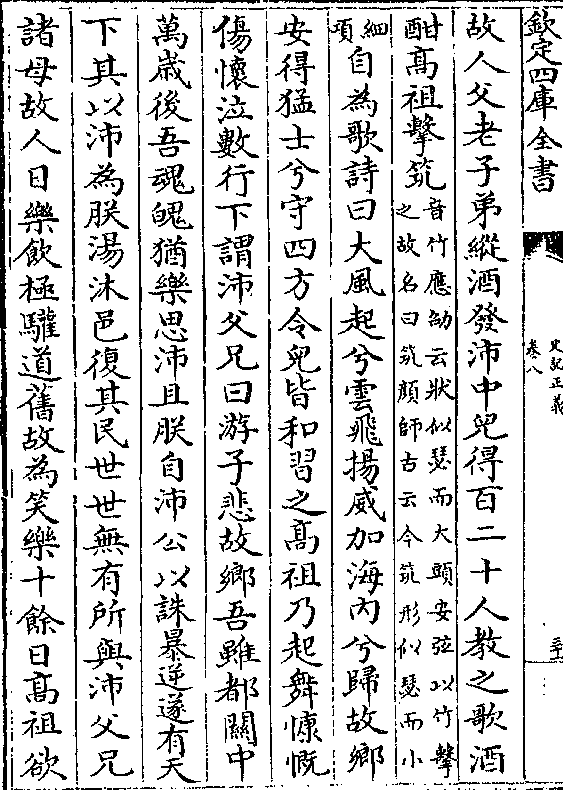 欽定四庫全書
史記正義
卷八
故人父老子弟縱酒發沛中兒得百二十人教之歌酒
酣高祖擊筑音竹應劭云狀似瑟而大頭安弦以竹擊
之故名曰筑顏師古云今筑形似瑟而小
細項自為歌詩曰大風起兮雲飛揚威加海內兮歸故鄉
安得猛士兮守四方令兒皆和習之髙祖乃起舞慷慨
傷懷泣數行下謂沛父兄曰游子悲故鄉吾雖都關中
萬歲後吾魂魄猶樂思沛且朕自沛公以誅暴逆遂有天
下其以沛為朕湯沐邑復其民世世無有所與沛父兄
諸母故人日樂飲極驩道舊故為笑樂十餘日髙祖欲